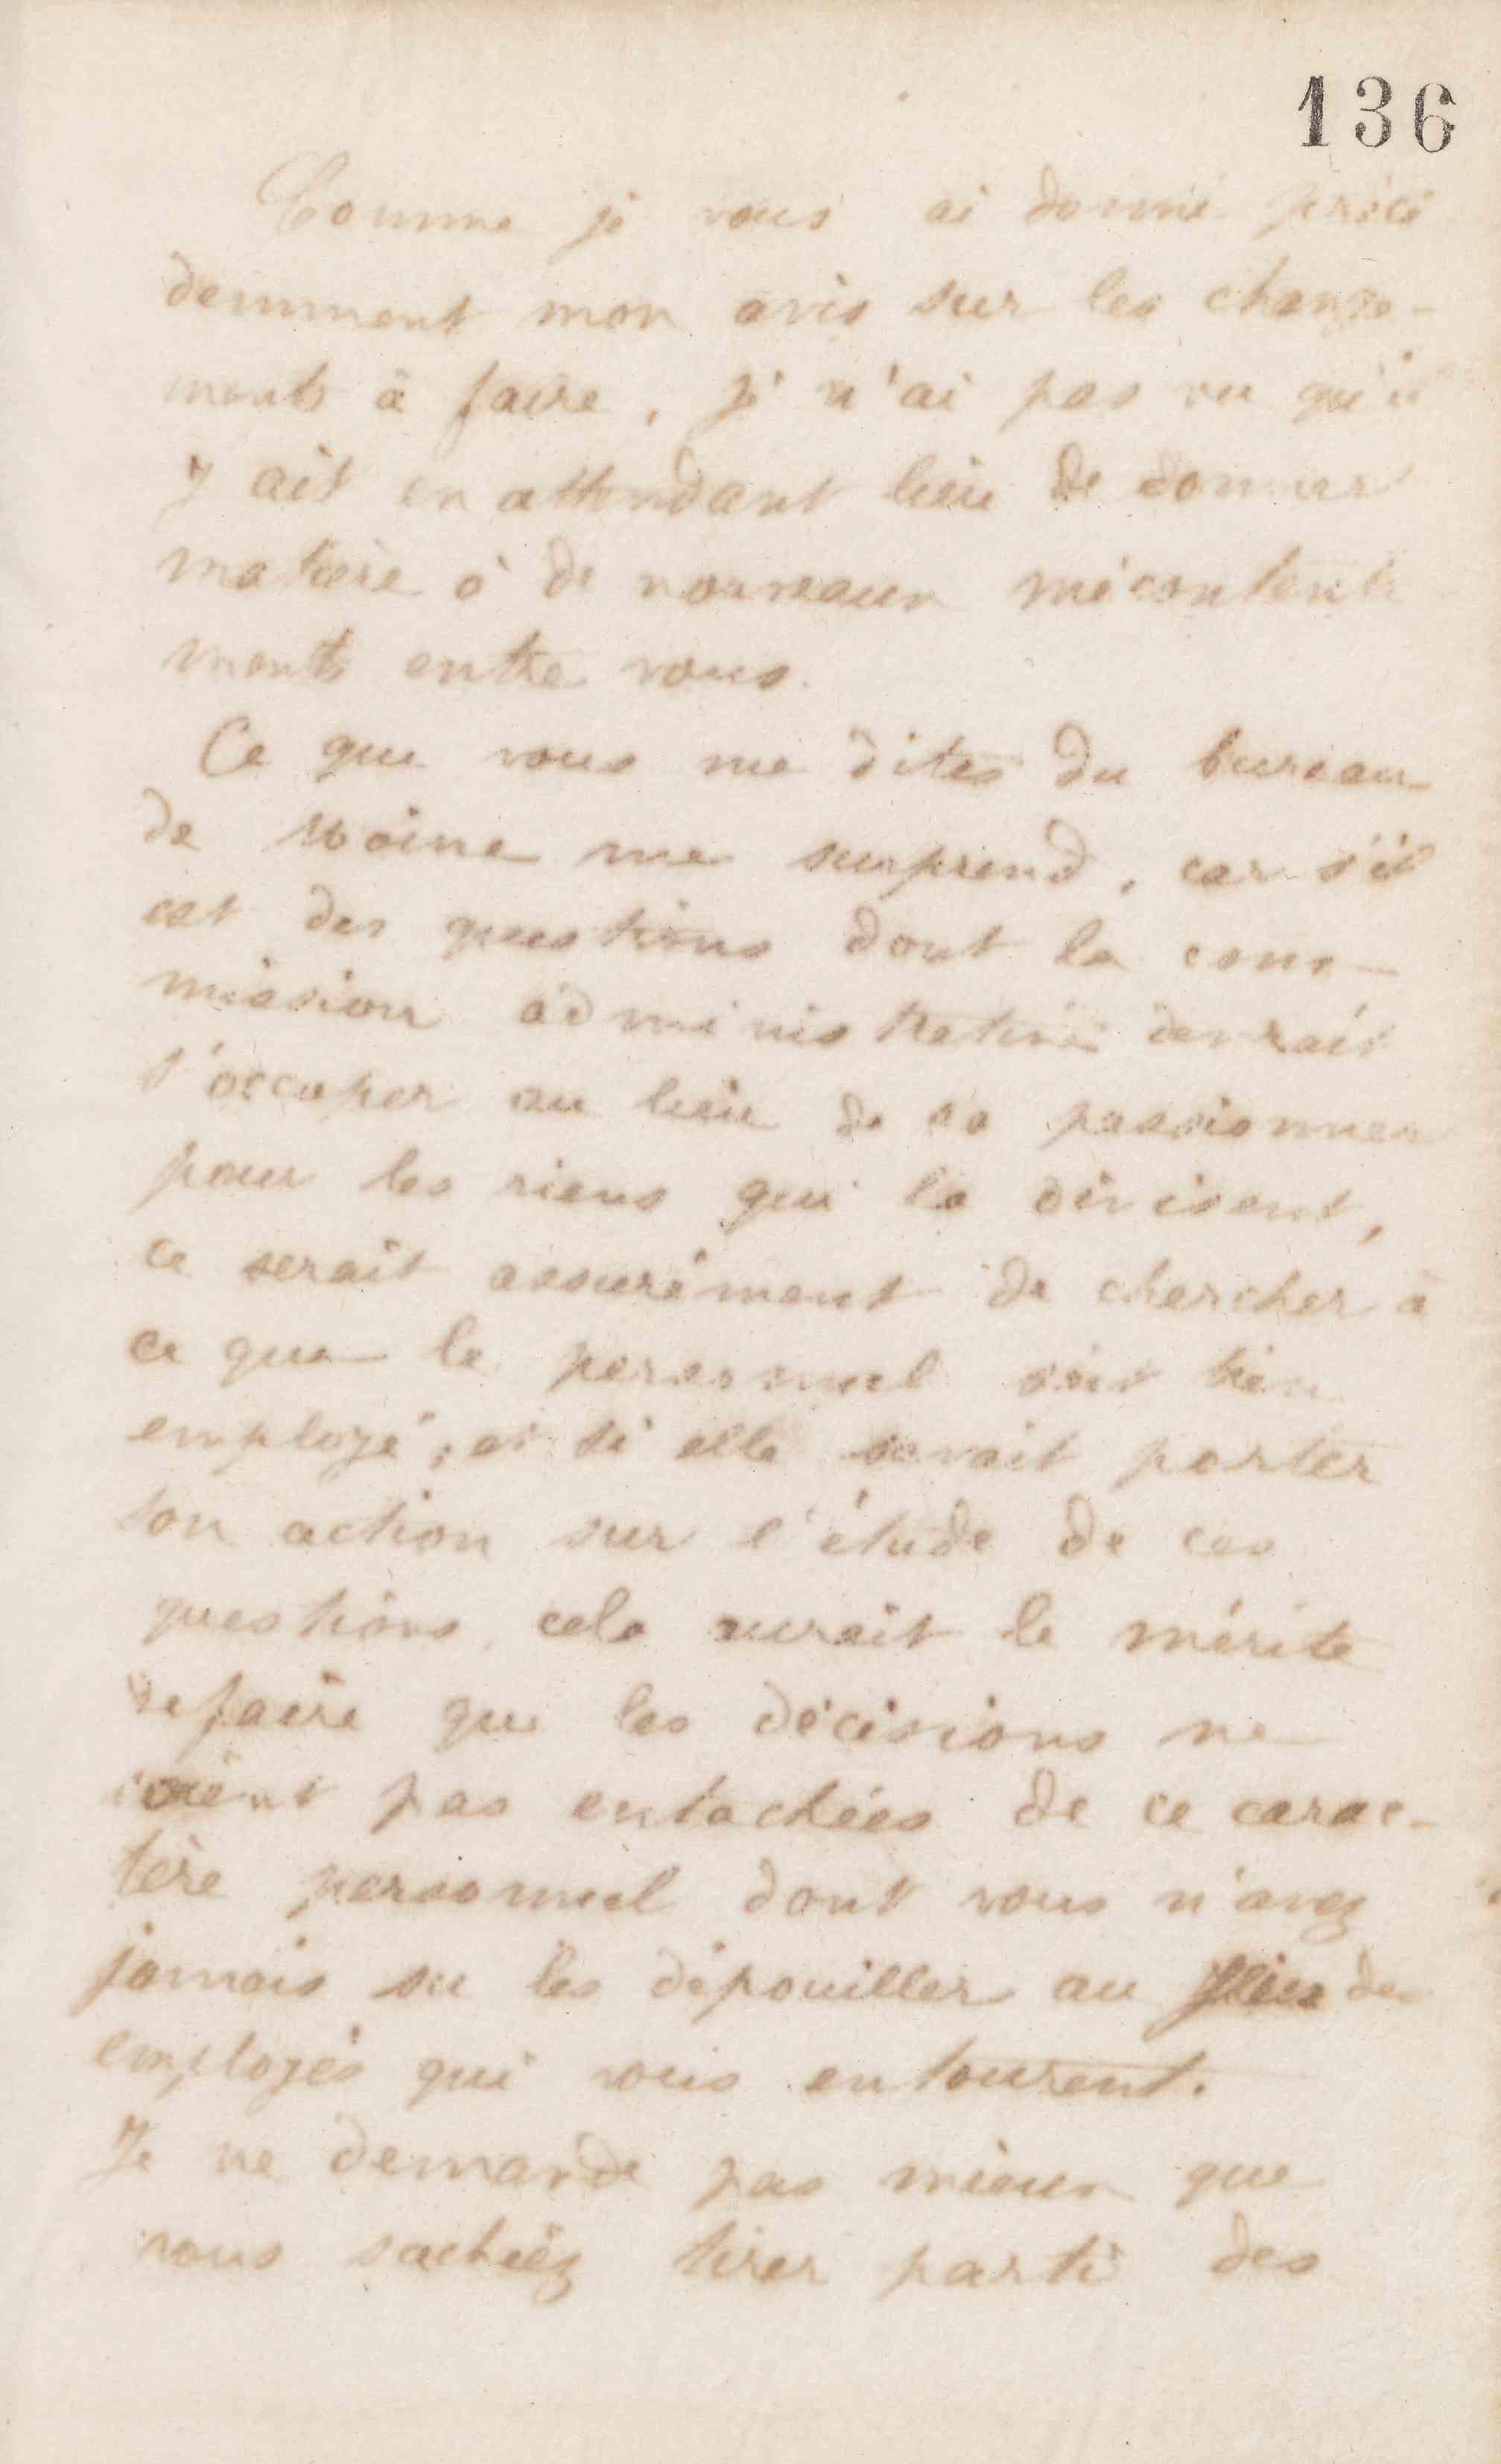 136
Comme je vous ai donné précé
demment mon avis sur les change-
ments à faire, je n'ai pas vu qu'il
y ait en attendant lieu de donner
matière à de nouveaux mécontente
ments entre vous.
Ce que vous me dites du bureau
de Moine me surprend, car s'il
est des questions dont la com-
mission administrative devrait
s'occuper au lieu de se passionner
pour les riens qui la divisent,
ce serait assurément de chercher à
ce que le personnel soit bien
employé, et si elle savait porter
son action sur l'étude de ces
questions, cela aurait le mérite
de faire que les décisions ne
soient pas entachées de ce carac-
tère personnel dont vous n'avez
jamais su les dépouiller au lieu des
employés qui vous entourent.
Je ne demande pas mieux que
vous sachiez tirer parti des